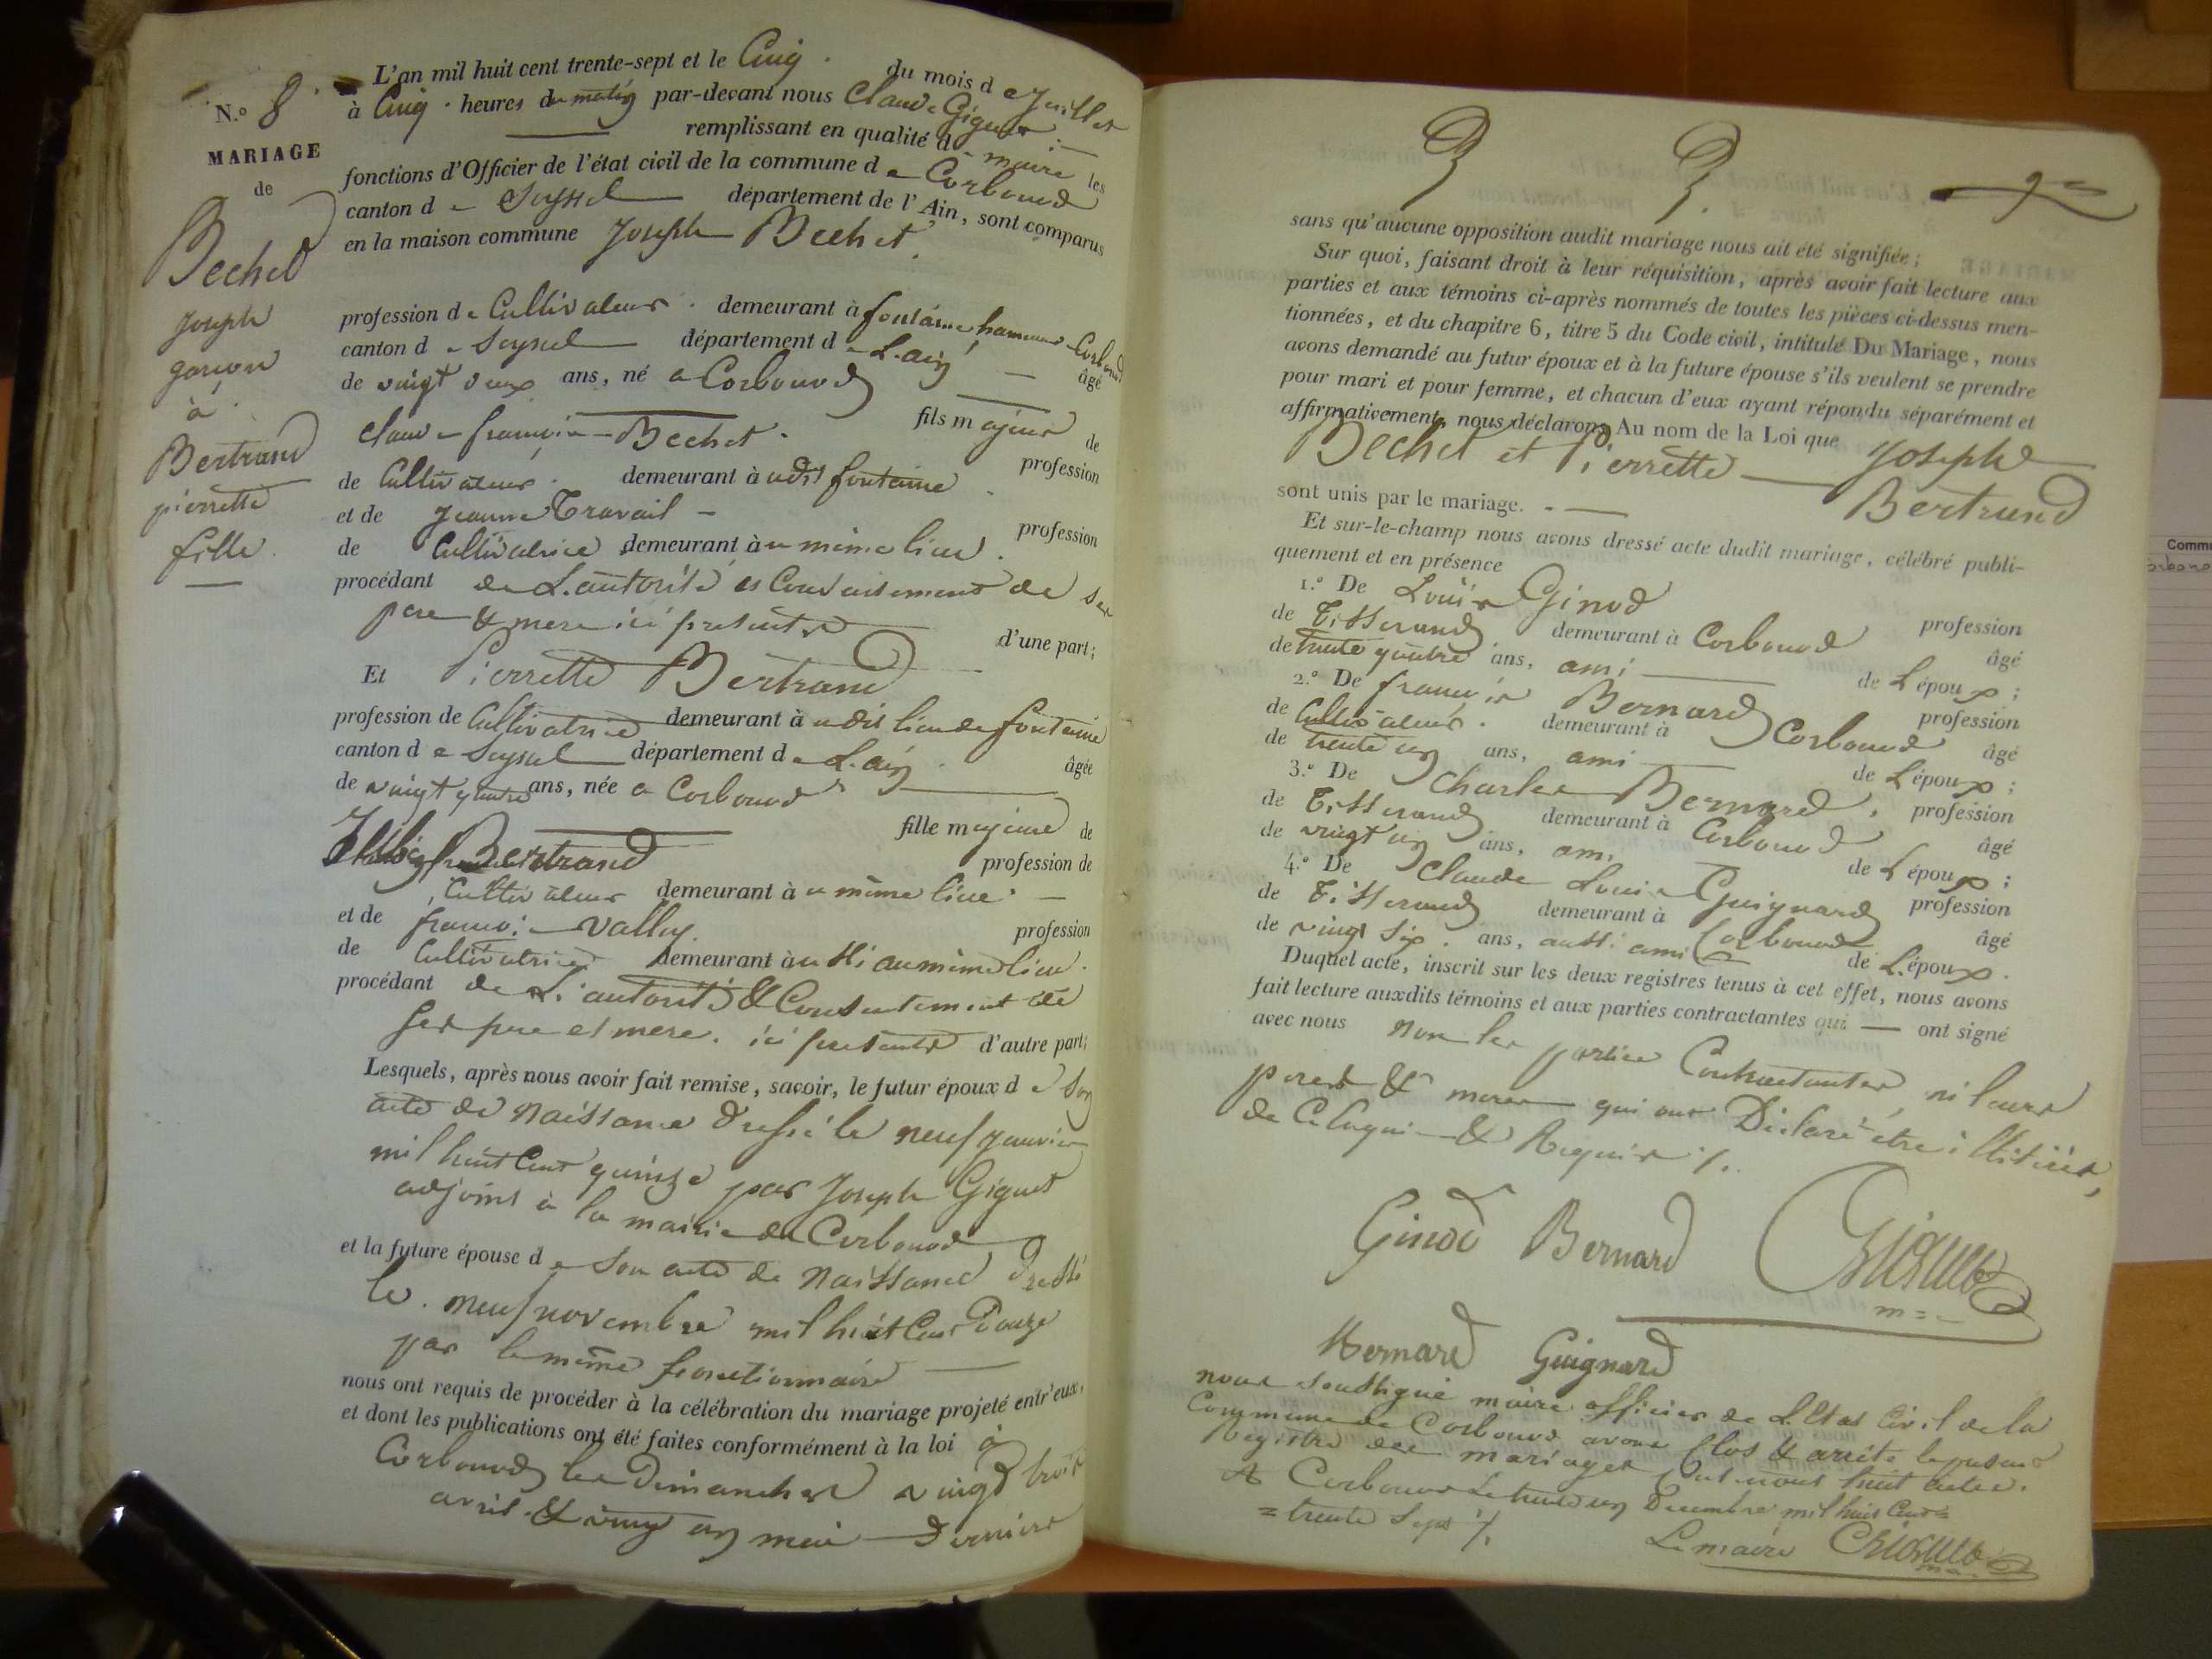 N.º 8
MARIAGE
de
Bechet
Joseph
garson
à
Bertrand
pierrette
fille
L'an mil huit cent trente-sept et le Cinq du mois de Juillet
à Cinq heures du matin par-devant nous Claude Giguet
remplissant en qualité de maire les
fonctions d'Officier de l'état civil de la commune de Corbonod
canton de Seyssel département de l'Ain, sont comparus
en la maison commune Joseph Bechet
profession de Cultivateur demeurant à fontaine hameau Corbonod
canton de Seyssel département de L'ain âgé
de vingt deux ans, né a Corbonod
fils majeur de
Claude francois Bechet profession
de Cultivateur demeurant à udit fontaine
et de Jeanne Travail profession
de Cultivatrice demeurant à u même lieu
procédant de L'autorité et Consentement de ses
pere & mere ici presents d'une part;
Et Pierrette Bertrand
profession de Cultivatrice demeurant à udit lieu de fontaine
canton de Seyssel département de L'ain âgée
de vingt quatre ans, née a Corbonod
fille majeure de
Bertrand profession de
Cultivateur demeurant à u même lieu
et de françoise Vallu profession
de Cultivatrice demeurant à ussi au même lieu
procédant de L'autorité & Consentement de
ses pere et mere ici presents d'autre part;
Lesquels, après nous avoir fait remise, savoir, le futur époux de Son
acte de Naissance dressé le neuf janvier
mil huit Cent quinze par Joseph Giguet
adjoint à la mairie de Corbonod
et la future épouse de Son acte de Naissance dressé
le neuf novembre mil huit Cent Douze
par le même fonctionnaire
nous ont requis de procéder à la célébration du mariage projeté entr'eux,
et dont les publications ont été faites conformément à la loi à
Corbonod les Dimanches vingt trois
avril & vingt un mai Derniers
sans qu'aucune opposition audit mariage nous ait été signifiée;
Sur quoi, faisant droit à leur réquisition, après avoir fait lecture aux
parties et aux témoins ci-après nommés de toutes les pièces ci-dessus men-
tionnées, et du chapitre 6, titre 5 du Code civil, intitulé Du Mariage, nous
avons demandé au futur époux et à la future épouse s'ils veulent se prendre
pour mari et pour femme, et chacun d'eux ayant répondu séparément et
affirmativement, nous déclarons Au nom de la Loi que Joseph
Bechet et Pierrette Bertrand
sont unis par le mariage.
Et sur-le-champ nous avons dressé acte dudit mariage, célébré publi-
quement et en présence
1.º De Louis Ginod profession
de Tisserand demeurant à Corbonod âgé
de trente quatre ans, ami de L'époux;
2.º De françois Bernard profession
de Cultivateur demeurant à Corbonod âgé
de trente un ans, ami de L'époux;
3.º De Charles Bernard profession
de Tisserand demeurant à Corbonod âgé
de vingt un ans, ami de L'époux;
4.º De Claude Louis Guignard profession
de Tisserand demeurant à Corbonod âgé
de vingt six ans, aussi ami de L'époux.
Duquel acte, inscrit sur les deux registres tenus à cet effet, nous avons
fait lecture auxdits témoins et aux parties contractantes qui ont signé
avec nous non les parties Contractantes, ni leurs
peres & meres qui ont Déclaré être illitérés,
de Ce Enquis & Requis
Ginod Bernard Giguet
Bernard Guignard
nous soussigné maire officier de L'Etat Civil de la
Commune de Corbonod avons Clos & arrêté le présent
Registre des mariages huit actes.
A Corbonod Le trente un Decembre mil huit Cent
trente Sept
Le maire Giguet
Comm